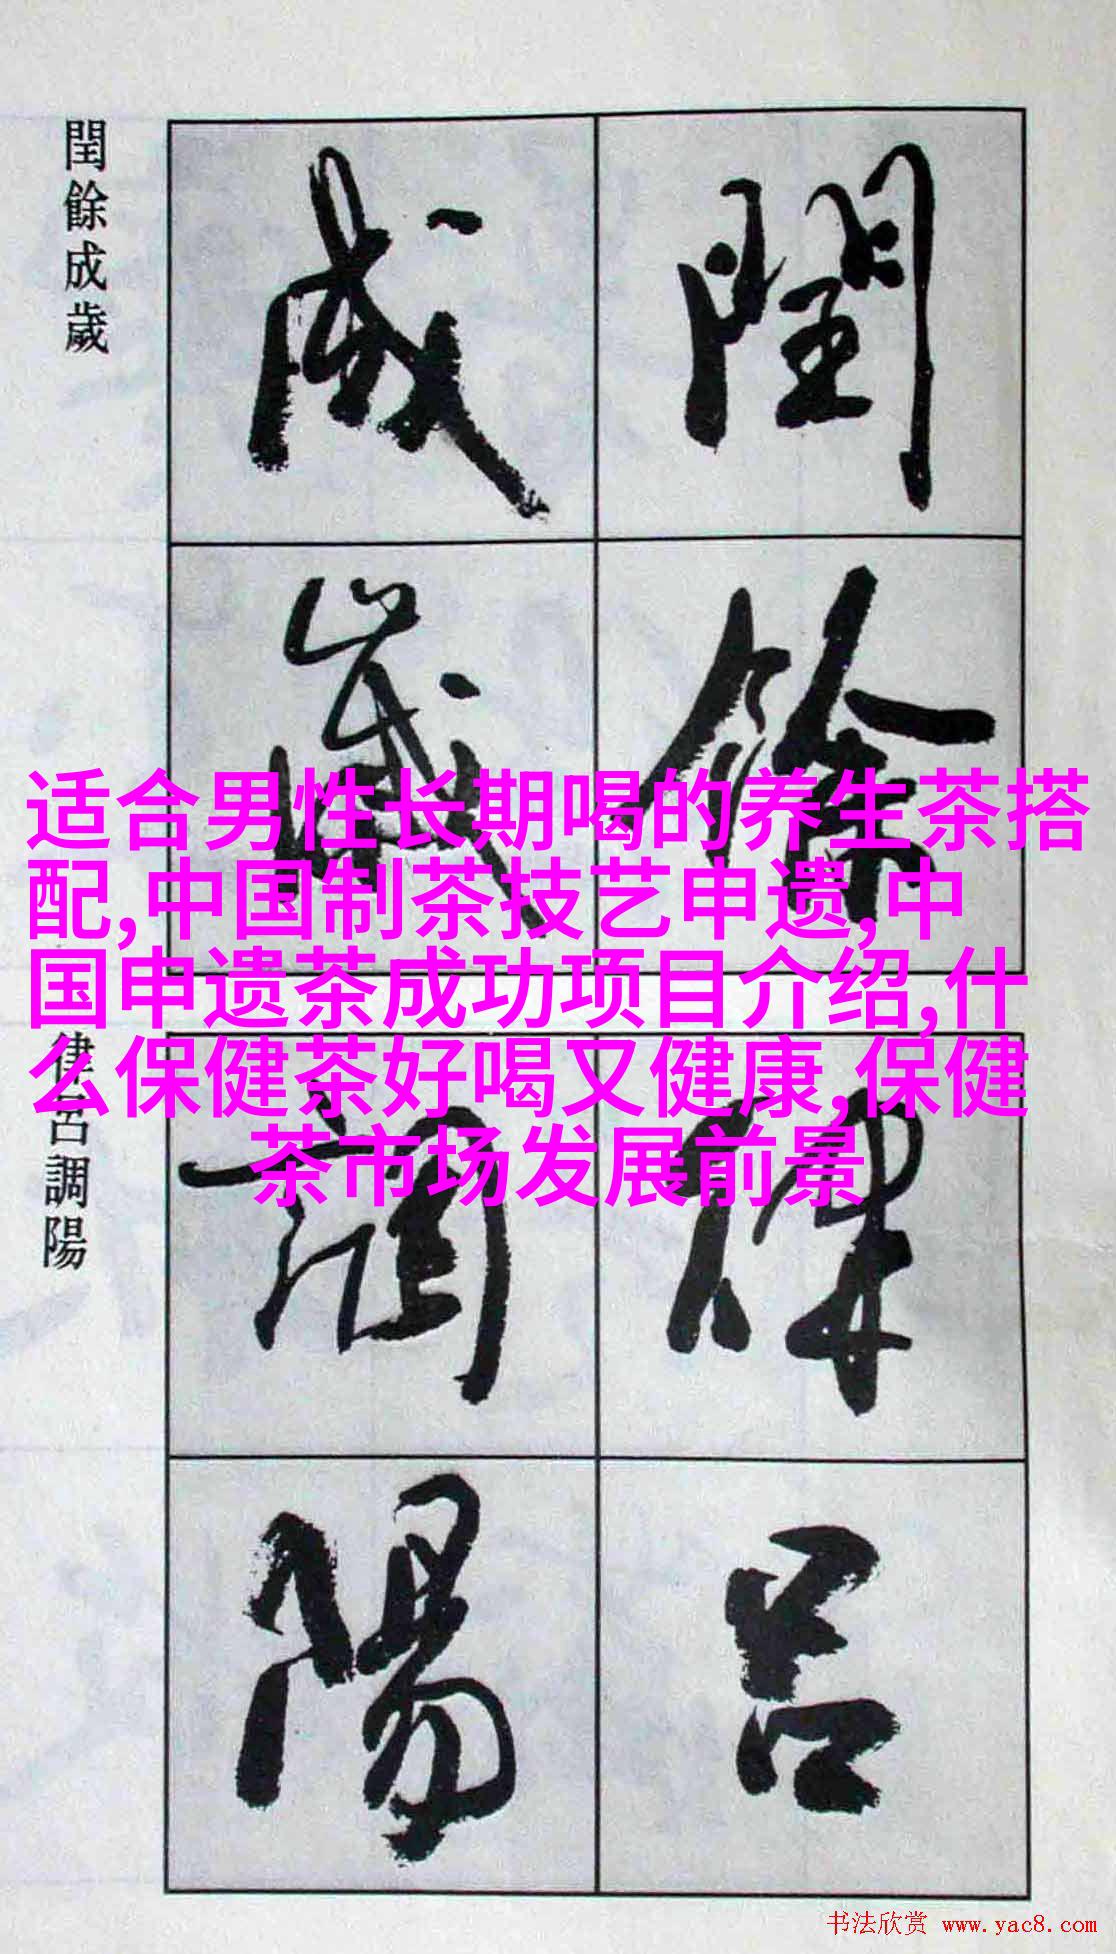 閏餘成歲
閏餘
成歲
适合男性长期喝的养生茶搭
配,中国制茶技艺申遗,中
国申遗茶成功项目介绍,什
么保健茶好喝又健康,保健
茶市场发展前景
律呂調陽
律呂
調陽
书法欣赏 www.yac8.com